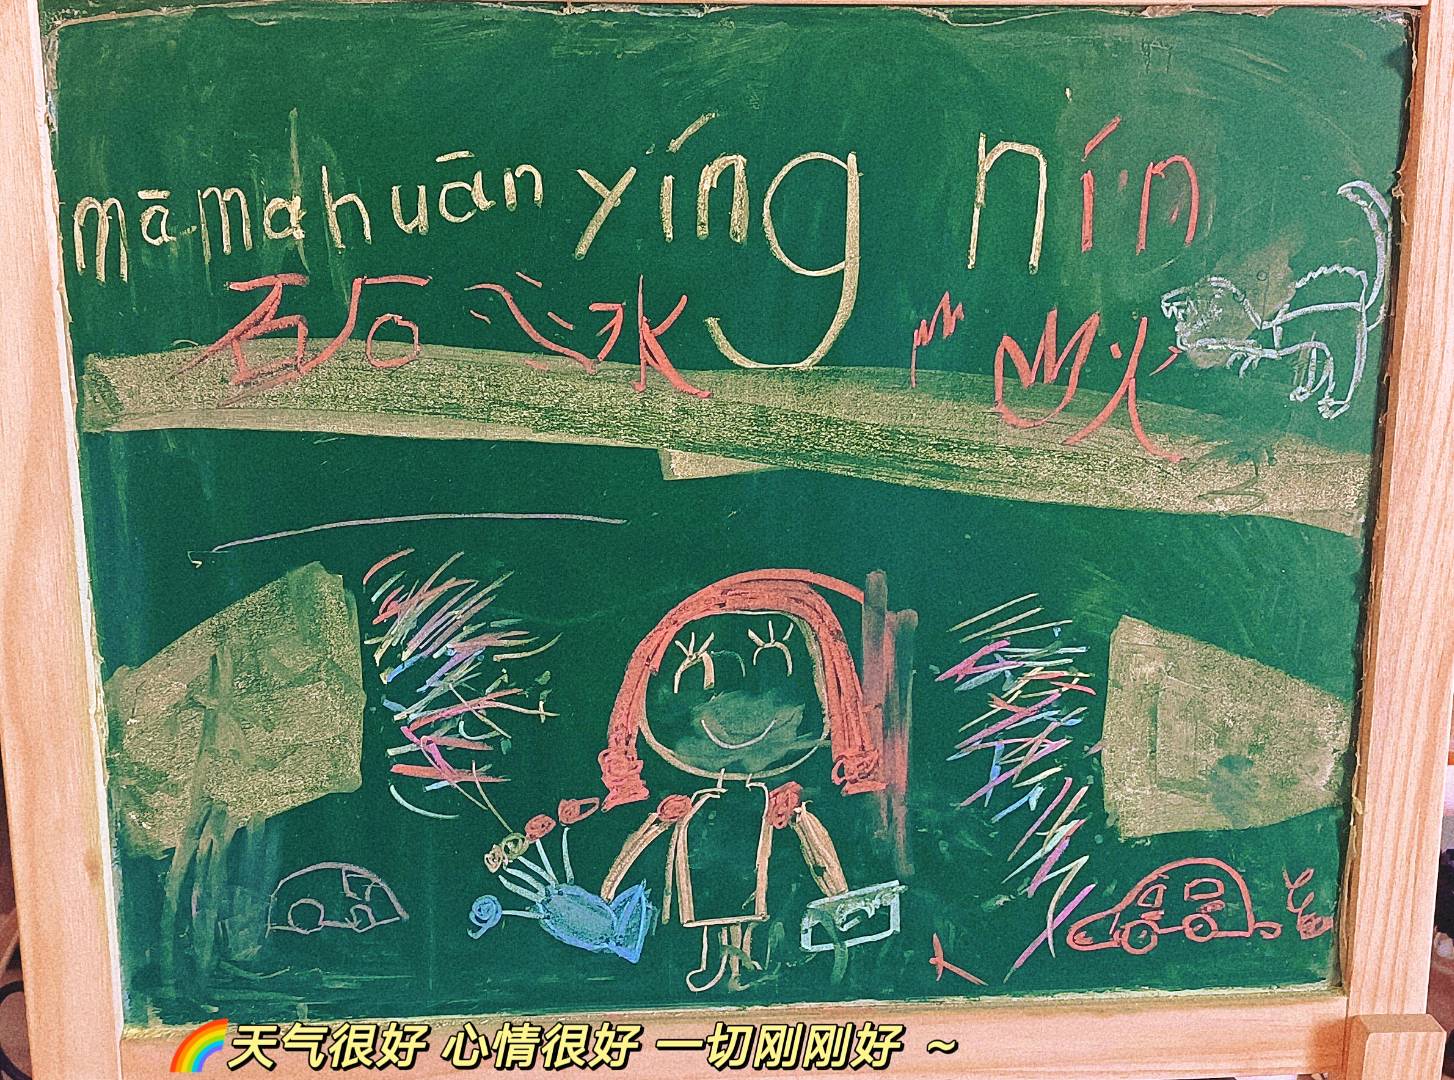 māma huānyíng nín
石石 水 山 火
🌈天气很好 心情很好 一切刚刚好 ~